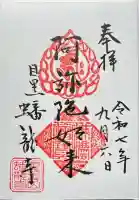 奉拝
令和七年
九月六日
阿弥陀如来
目黒
蟠龍寺